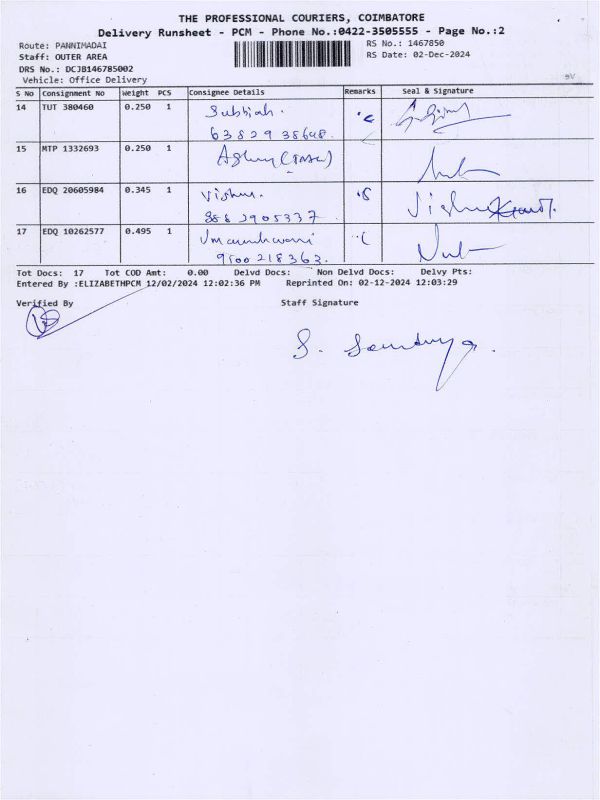 THE PROFESSIONAL COURIERS, COIMBATORE
Delivery Runsheet - PCM - Phone No.:0422-3505555 - Page No.:2
Route: PANNIMADAI
RS No.: 1467850
Staff: OUTER AREA
RS Date: 02-Dec-2024
DRS No.: DCJB146785002
Vehicle: Office Delivery
S No Consignment No Weight PCS Consignee Details Remarks Seal & Signature
14 TUT 380460 0.250 1 Subbiah.
15 MTP 1332693 0.250 1
16 EDQ 20605984 0.345 1 Vishnu.
8882905337
17 EDQ 10262577 0.495 1
9500218363.
Tot Docs: 17 Tot COD Amt: 0.00 Delvd Docs: Non Delvd Docs: Delvy Pts:
Entered By :ELIZABETHPCM 12/02/2024 12:02:36 PM Reprinted On: 02-12-2024 12:03:29
Verified By Staff Signature